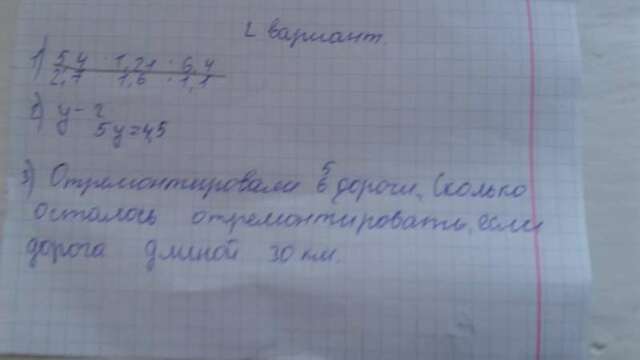 2 вариант.
1) 5,4 · 1,21 · 6,4
2,7 · 1,6 · 1,1
2) у - ?
5у = 4,5
3) Отремонтировали 5/6 дороги, Сколько
осталось отремонтировать, если
дорога длиной 30 км.